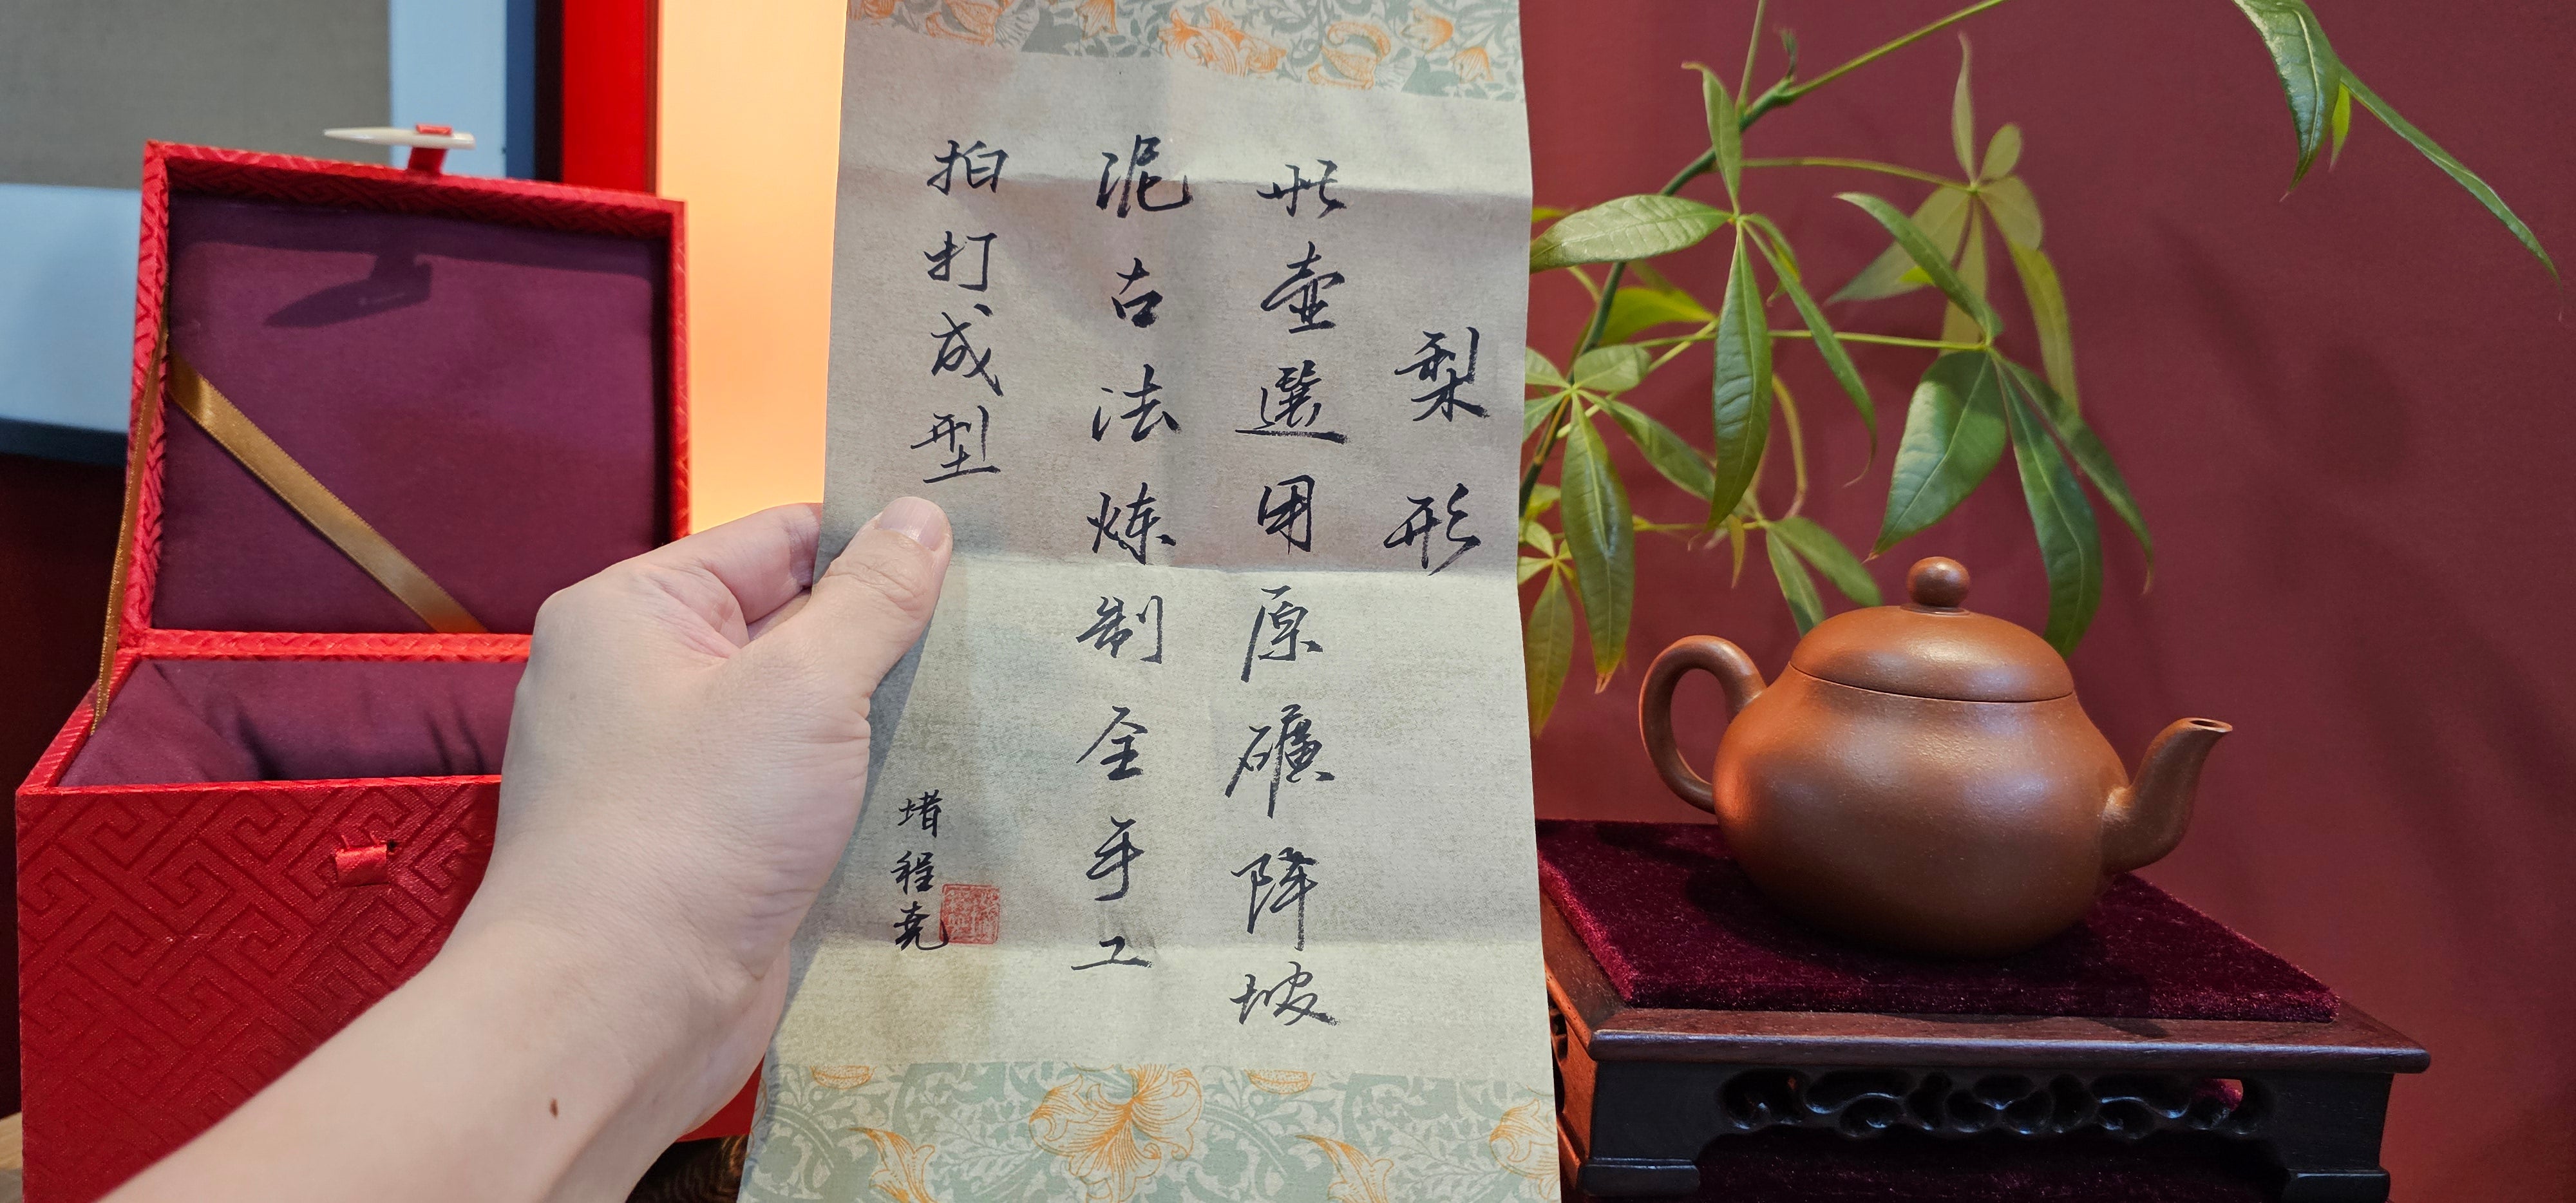 梨形
此壶選用原礦降坡
泥古法炼制全手工
拍打成型
堵程尧